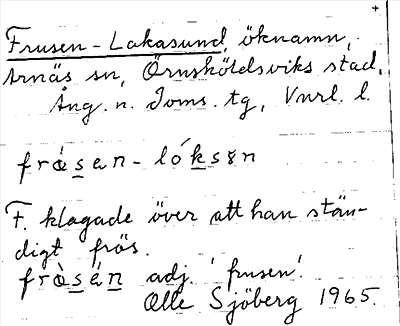 +
Frusen-Lakasund, öknamn,
Arnäs sn, Örnsköldsviks stad,
Ång. n. Doms. tg, Vnrl. l.
frȯsen-lóksɤn
F. klagade över att han stän-
digt frös.
frȯ̀sén adj. 'frusen'.
Olle Sjöberg 1965.